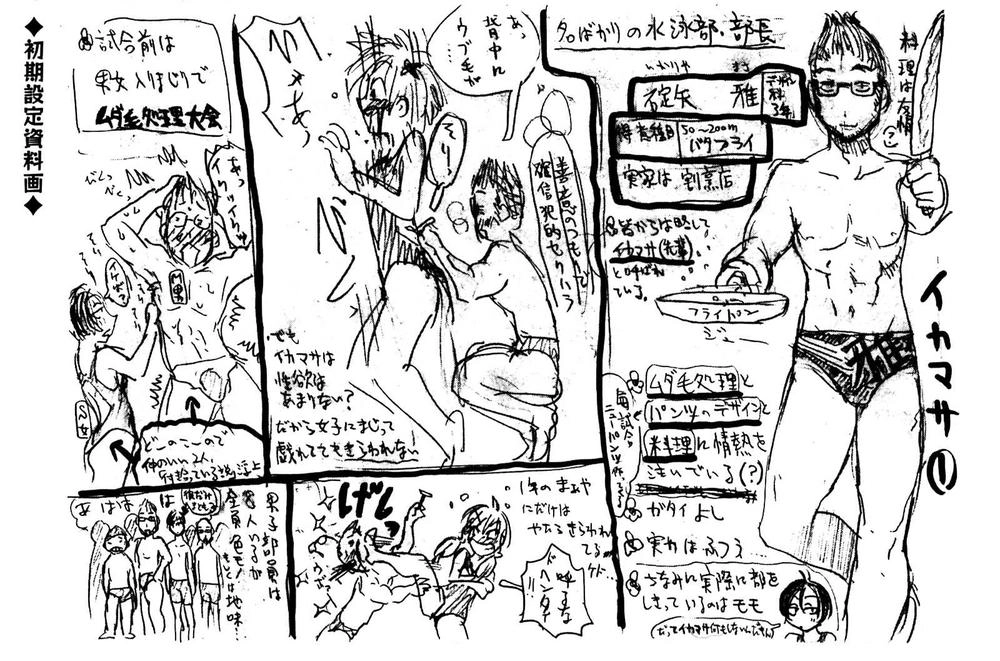 ◆初期設定資料画◆
イカマサ①
料理は友情
(?)
タロばかりの水泳部・部長
いかりや
まさ
碇矢 雅
デザイン科3年
得意種目
50~200m
バタフライ
実家は割烹店
皆からは略して
イカマサ(先輩)
と呼ばれ
ている。
フライパン
ジュー
雅
ムダ毛処理と
パンツのデザインと
料理に情熱を
注いでいる(?)
毎試合
ニューパンツ
ガタイよし
実力はふつう
ちなみに実際に部を
しきっているのはモモ
だってイカマサ何もしないんだもん
あっ
背中に
ウブ毛が
そりー
善意のつもりで
確信犯的セクハラ
でも
イカマサは
性欲は
あまりない?
だから女子にまじって
戯れててもきらわれない!
試合前は
男女入りまじりで
ムダ毛処理大会
あっ
イクッイクッ
M男
どーのこーので
仲のいい2人。
付き合っている説も浮上
1年のまみや
にだけは
やたらきらわれ
てる
ケド…
げしっ
呼ぶな
ドヘンタイ
男子部員は
8人いるが
全員色モノ
もしくは地味…
あははは